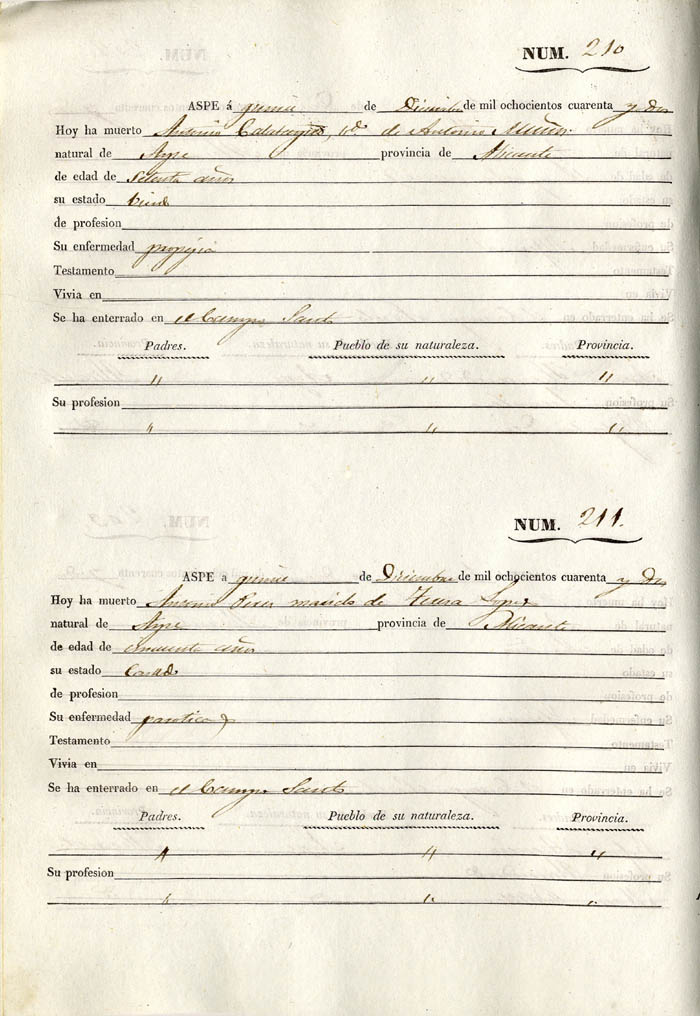 NUM. 210
ASPE á quince de Diciembre de mil ochocientos cuarenta y dos
Hoy ha muerto Antonio de Antonio Muños
natural de Aspe provincia de Alicante
de edad de Setenta años
su estado
de profesion
Su enfermedad
Testamento
Vivia en
Se ha enterrado en el Campo Santo
Padres. Pueblo de su naturaleza. Provincia.
" " "
Su profesion
" " "
NUM. 211.
ASPE a quince de Diciembre de mil ochocientos cuarenta y dos
Hoy ha muerto Antonio Peres marido de Teresa Lopes
natural de Aspe provincia de Alicante
de edad de cincuenta años
su estado Casado
de profesion
Su enfermedad
Testamento
Vivia en
Se ha enterrado en el Campo Santo
Padres. Pueblo de su naturaleza. Provincia.
" " "
Su profesion
" " "